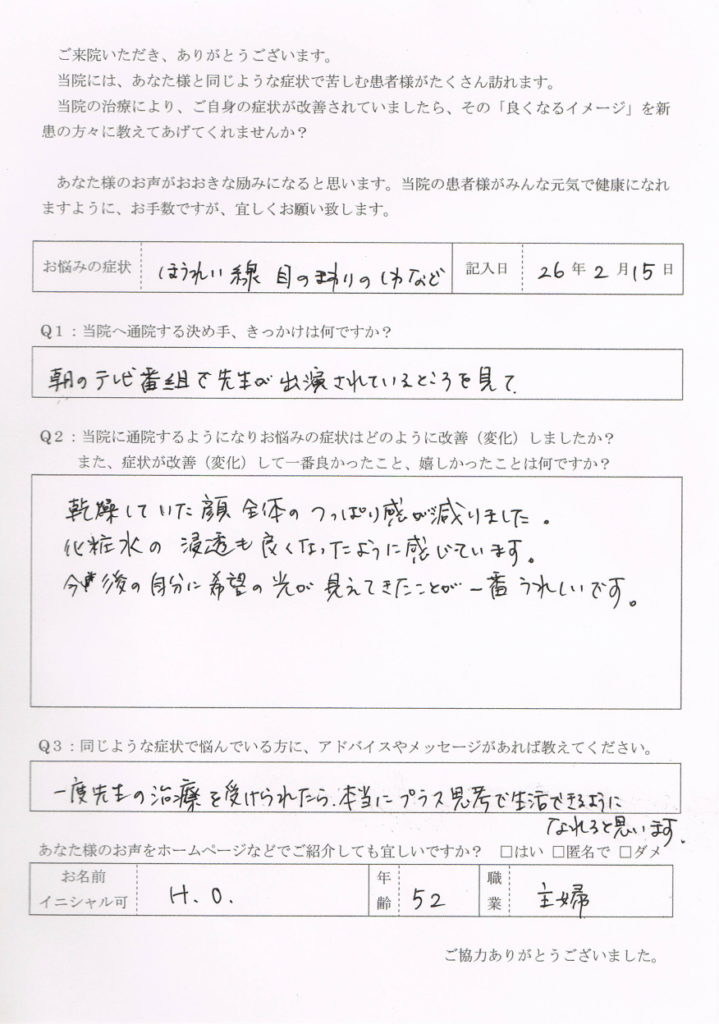 ご来院いただき、ありがとうございます。
当院には、あなた様と同じような症状で苦しむ患者様がたくさん訪れます。
当院の治療により、ご自身の症状が改善されていましたら、その「良くなるイメージ」を新
患の方々に教えてあげてくれませんか？
あなた様のお声がおおきな励みになると思います。当院の患者様がみんな元気で健康になれ
ますように、お手数ですが、宜しくお願い致します。
お悩みの症状 ほうれい線 目のまわりのしわなど 記入日 26年2月15日
Q1：当院へ通院する決め手、きっかけは何ですか？
朝のテレビ番組で先生が出演されているところを見て
Q2：当院に通院するようになりお悩みの症状はどのように改善（変化）しましたか？
また、症状が改善（変化）して一番良かったこと、嬉しかったことは何ですか？
乾燥していた顔全体のつっぱり感が減りました。
化粧水の浸透も良くなったように感じています。
今後の自分に希望の光が見えてきたことが一番うれしいです。
Q3：同じような症状で悩んでいる方に、アドバイスやメッセージがあれば教えてください。
一度先生の治療を受けられたら、本当にプラス思考で生活できるように
なれると思います。
あなた様のお声をホームページなどでご紹介しても宜しいですか？ □はい □匿名で □ダメ
お名前 イニシャル可 H.O. 年齢 52 職業 主婦
ご協力ありがとうございました。